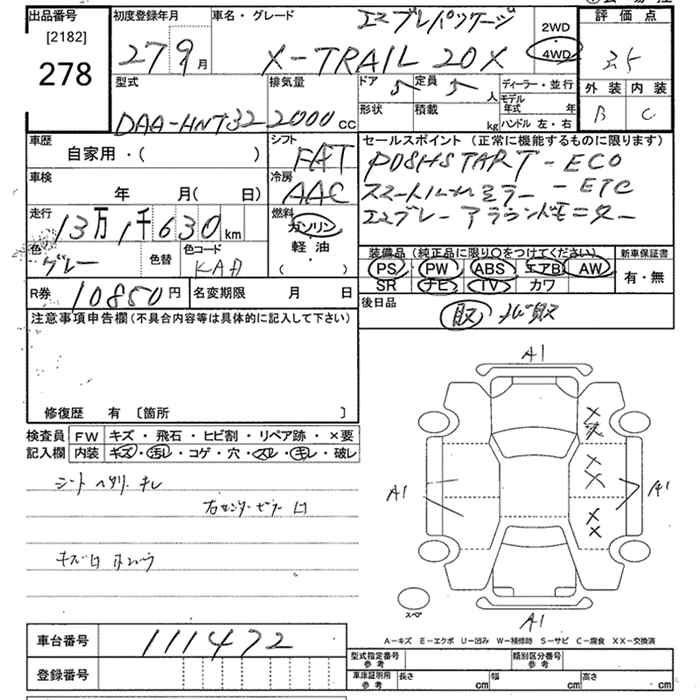 出品番号 初度登録年月 車名・グレード エマブレパッケージ 評価点
[2182]
278
27 9月 X-TRAIL 20X 2WD 4WD 3.5
型式 排気量 ドア 5 定員 5人 ディーラー・並行 外装 内装
DAA-HNT32 2000cc 形状 積載 kg モデル年式 年 B C
ハンドル 左・右
車歴 シフト セールスポイント (正常に機能するものに限ります)
自家用・( ) FAT PUSHSTART - ECO
車検 冷房 スマートルームミラー - ETC
年 月( 日) AAC エマブレー アラウンドモニター
走行 13万1千630km 燃料 ガソリン
軽・油
( )
装備品 (純正品に限り〇をつけてください) 新車保証書
色 グレー 色替 色コード KAD PS PW ABS エアB AW 有・無
SR ナビ TV カワ
R券 10850円 名変期限 月 日 後日品 取
注意事項申告欄(不具合内容等は具体的に記入して下さい)
修復歴 有 [箇所 ]
検査員 FW キズ・飛石・ヒビ割・リペア跡・×要
記入欄 内装 キズ・汚レ・コゲ・穴・スレ・キレ・破レ
シート ヘタリ キレ
右センターピラー 凹
キズ凹
A1
A1
A1
A1
スペ
車台番号 111472
A-キズ E-エクボ U-凹み W-補修跡 S-サビ C-腐食 XX-交換済
登録番号
型式指定番号 参考 類別区分番号 参考
車庫証明用 参考 長さ cm 幅 cm 高さ cm